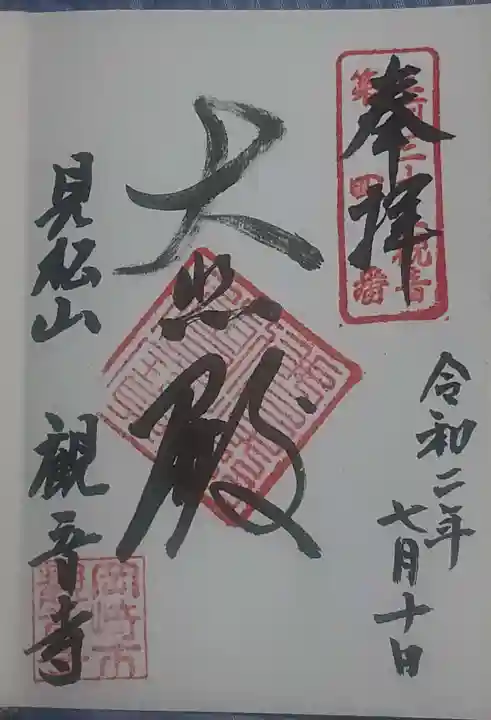 奉拝
令和二年
七月十日
大悲殿
見松山 観音寺
岡崎市